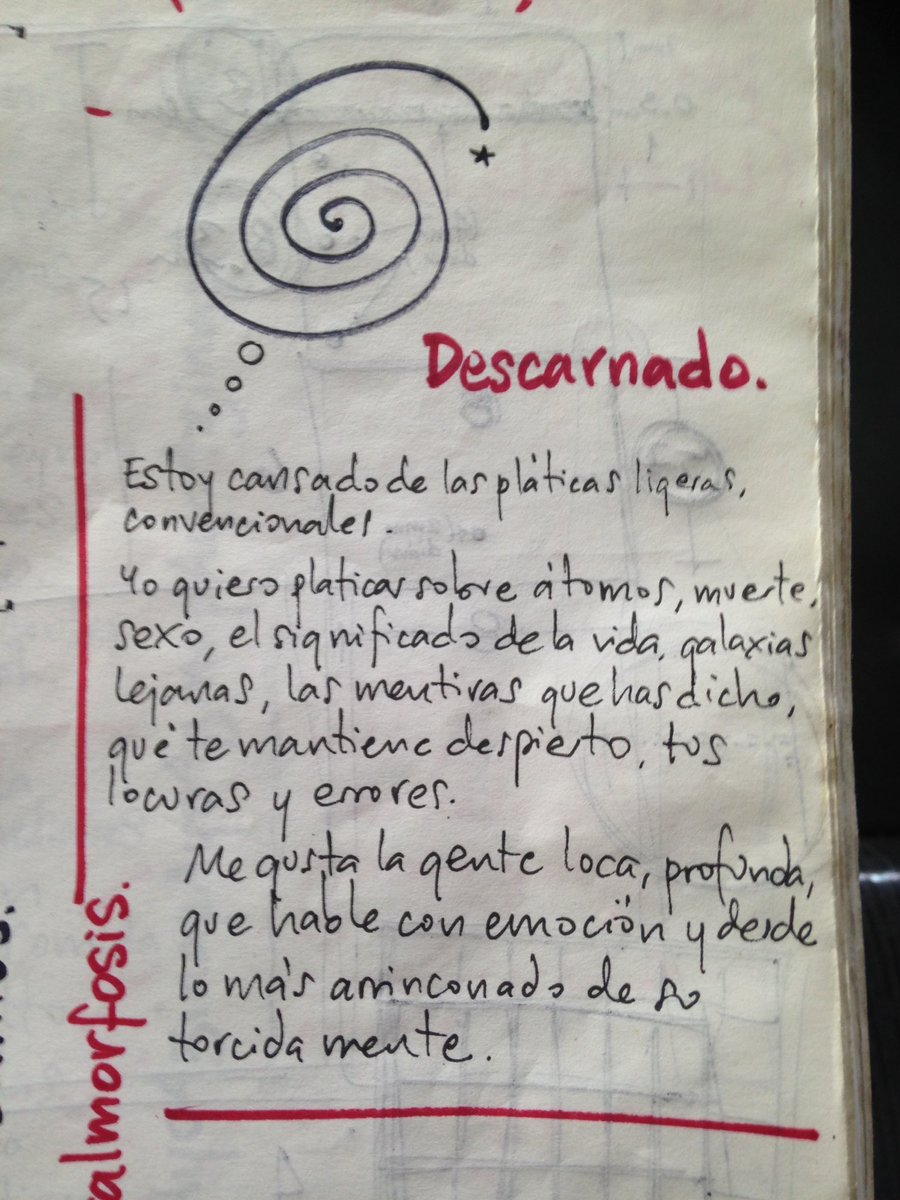 Descarnado.
Estoy cansado de las pláticas ligeras,
convencionales.
Yo quiero platicar sobre átomos, muerte,
sexo, el significado de la vida, galaxias
lejanas, las mentiras que has dicho,
qué te mantiene despierto, tus
locuras y errores.
Me gusta la gente loca, profunda,
que hable con emoción y desde
lo más arrinconado de su
torcida mente.
almorfosis.